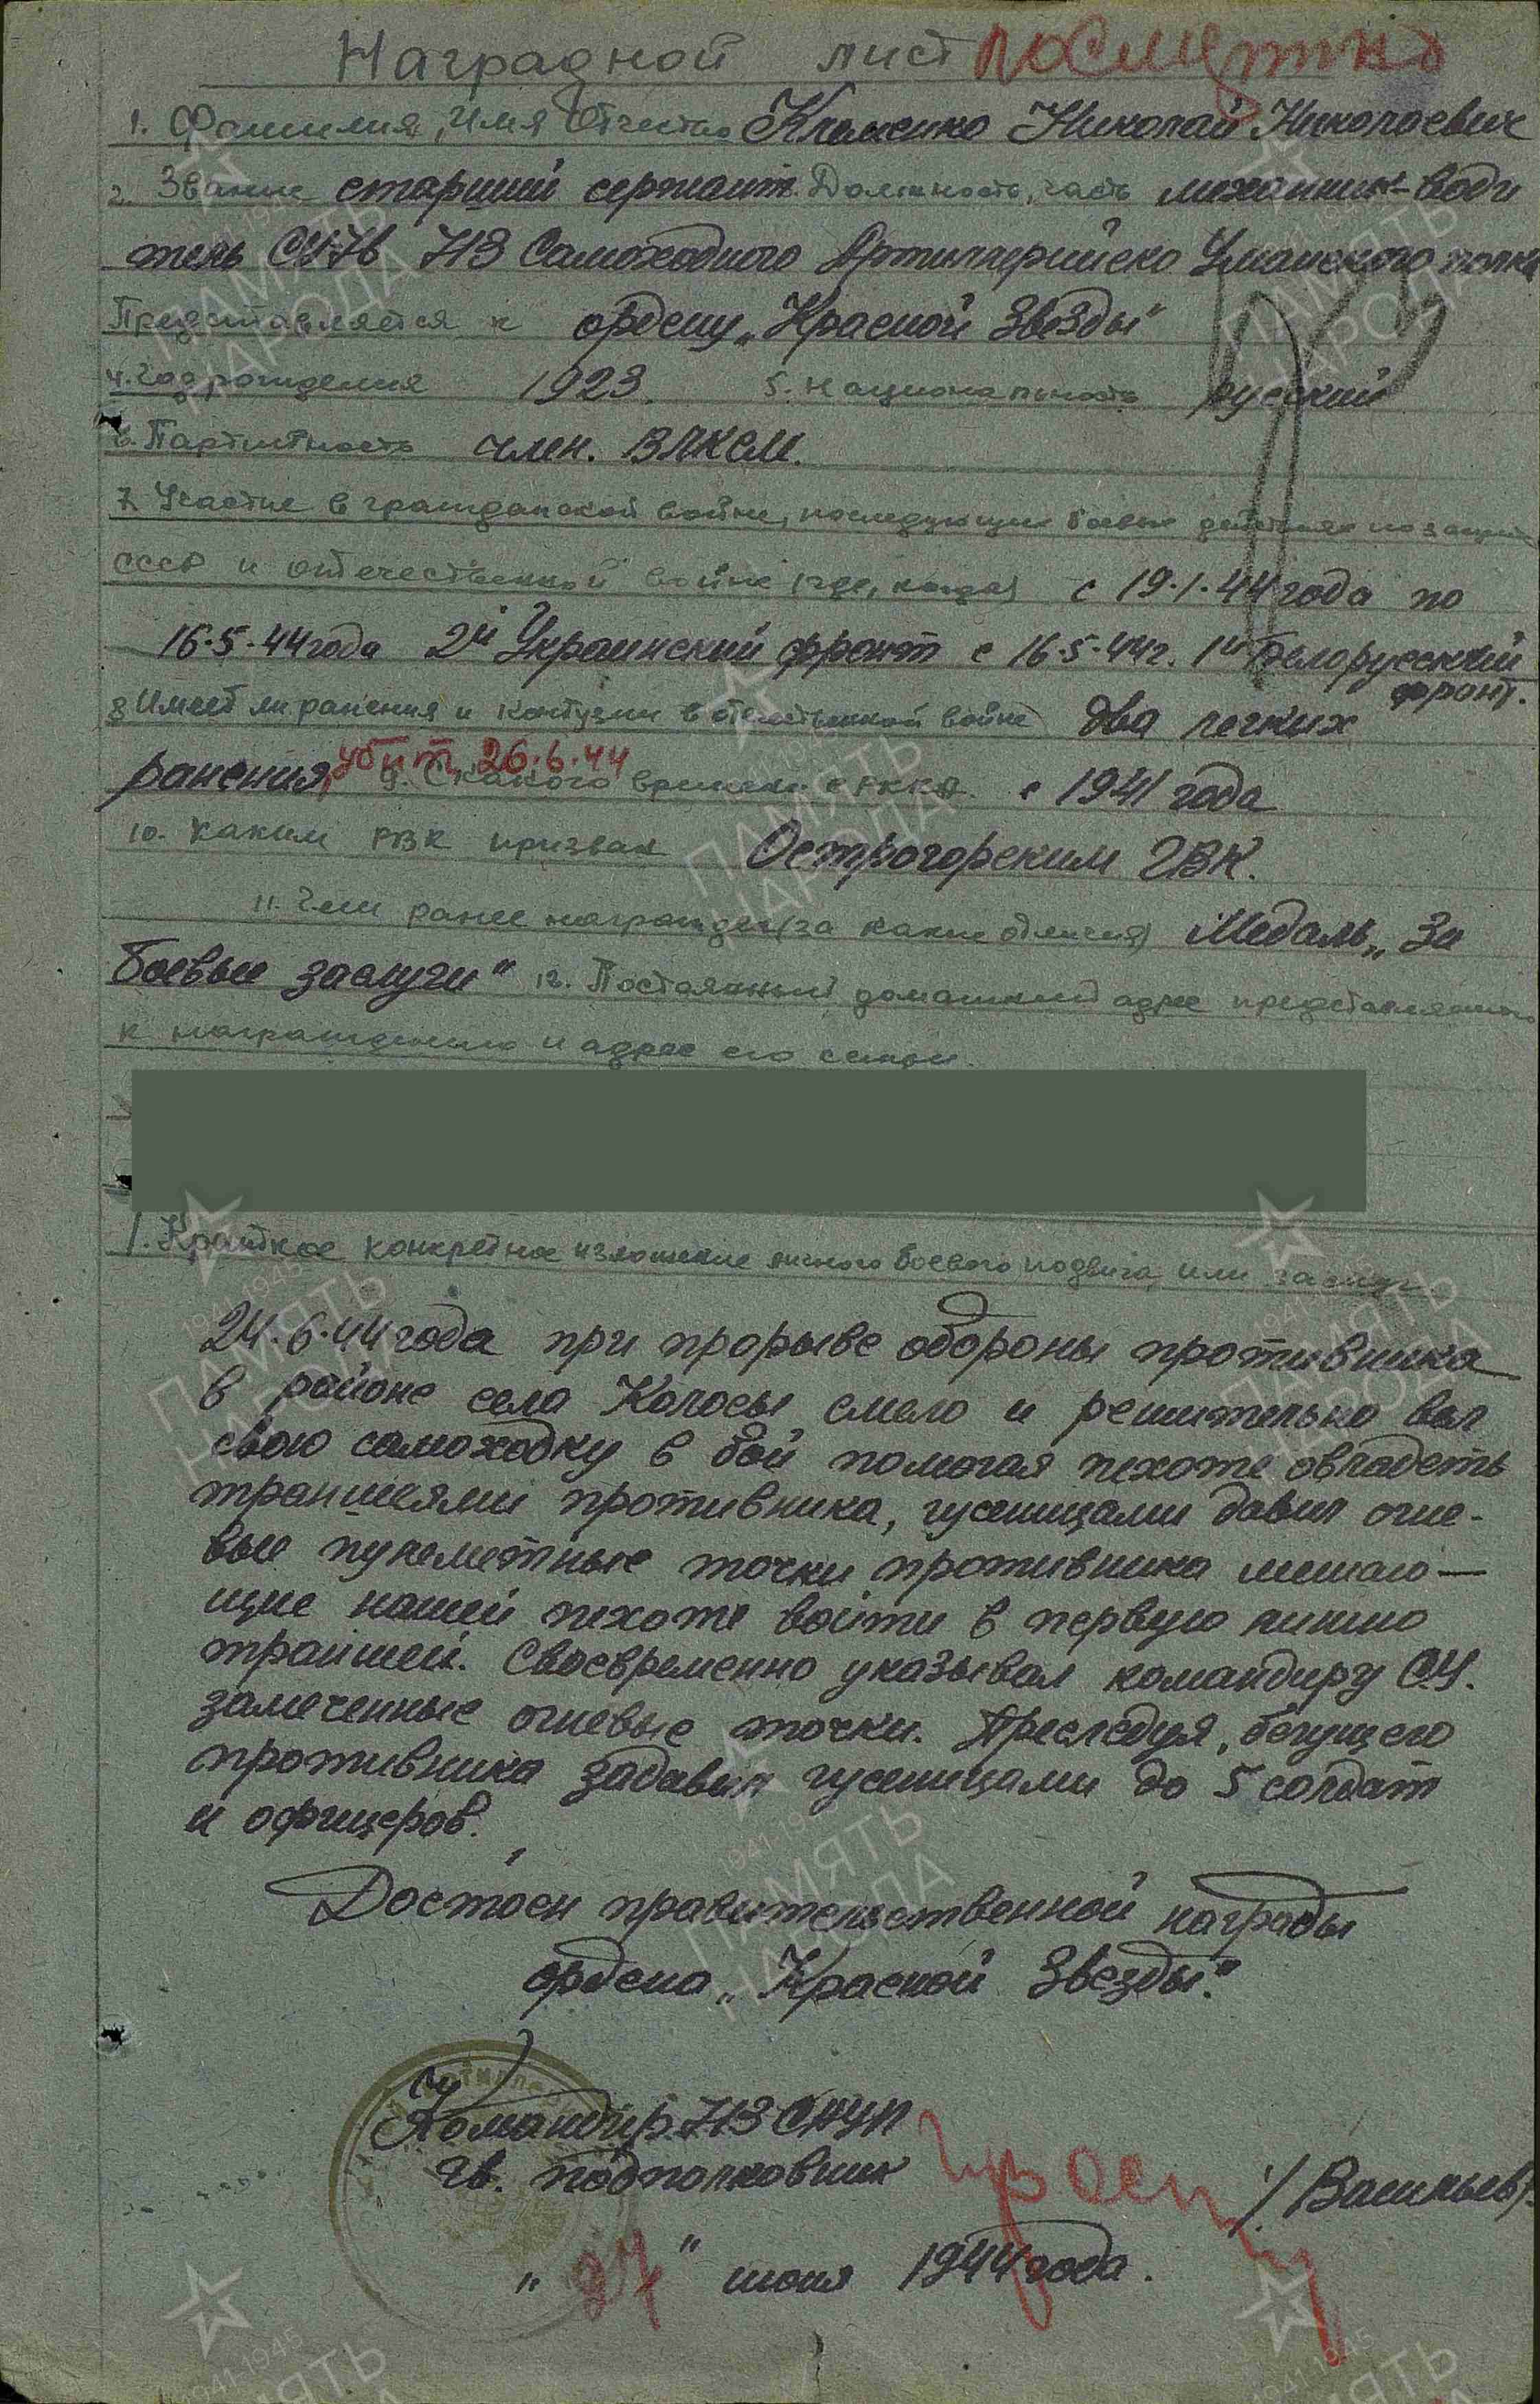 Наградной лист посмертно
1. Фамилия, Имя Отчество Клименко Николай Николаевич
2. Звание старший сержант Должность, часть механик-води
тель СУ-76 713 Самоходного Артиллерийско Уманского полка
Представляется к ордену „Красной Звезды"
4. Год рождения 1923. 5. Национальность русский
6. Партийность член. ВЛКСМ.
7. Участие в гражданской войне, последующие боевых действиях по защите
СССР и отечественной войне (где, когда) с 19.1.44 года по
16.5.44 года 2й Украинский фронт с 16.5.44г. 1й Белорусский
фронт.
8. Имеет ли ранения и контузии в отечественной войне два легких
ранения, убит 26.6.44 9. С какого времени в РККА с 1941 года
10. Каким РВК призван Острогорским ГВК.
11. Чем ранее награжден (за какие отличия) Медаль „За
боевые заслуги" 12. Постоянный домашний адрес представляемого
к награждению и адрес его семьи.
1. Краткое конкретное изложение личного боевого подвига или заслуг
24.6.44 года при прорыве обороны противника
в районе села Колосы смело и решительно вел
свою самоходку в бой помогая пехоте овладеть
траншеями противника, гусеницами давил огне-
вые пулеметные точки противника мешаю-
щие нашей пехоте войти в первую линию
траншей. Своевременно указывал командиру СУ.
замеченные огневые точки. Преследуя, бегущего
противника задавил гусеницами до 5 солдат
и офицеров.
Достоен правительственной награды
ордена „Красной Звезды".
Командир 713 САУП
гв. подполковник /Васильев/
„27" июня 1944 года.
ПАМЯТЬ
НАРОДА
1941-1945